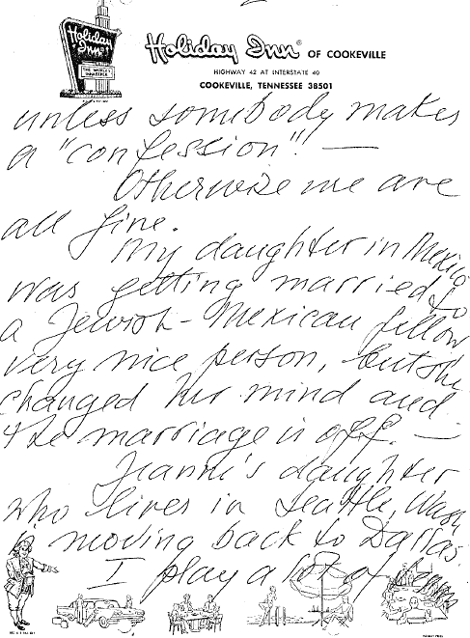 Holiday Inn
Holiday Inn® OF COOKEVILLE
HIGHWAY 42 AT INTERSTATE 40
COOKEVILLE, TENNESSEE 38501
unless somebody makes
a "confession"! —
Otherwise we are
all fine.
My daughter in Mexico
was getting married to
a Jewish-Mexican fellow
very nice person, but she
changed her mind and
the marriage is off. —
Jeanne's daughter
who lives in Seattle, Wash
moving back to Dallas.
I play a lot of